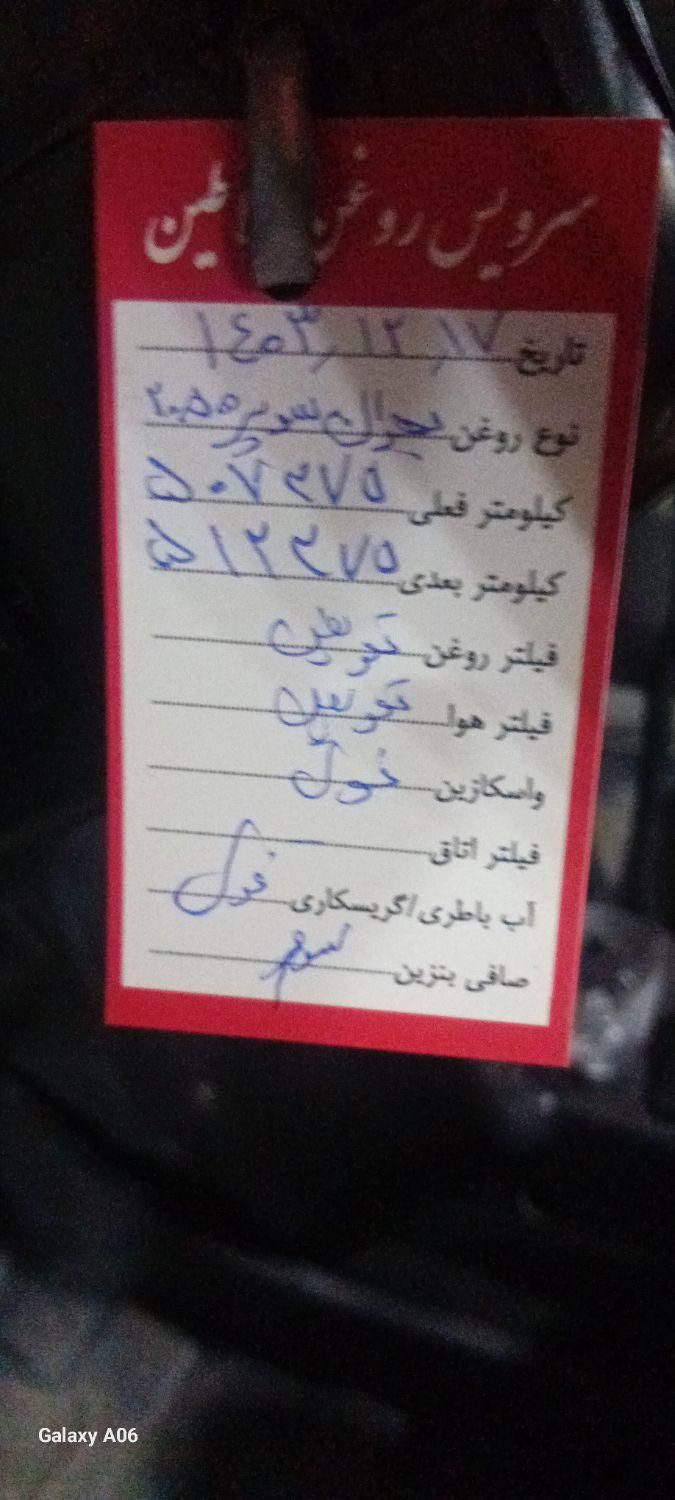 سرویس روغن
تاریخ ۱۴۰۳/۱۲/۱۷
نوع روغن بهران سوپر ۲۰.۵۰
کیلومتر فعلی ۵۰۷۳۷۵
کیلومتر بعدی ۵۱۲۳۷۵
فیلتر روغن تعویض
فیلتر هوا تعویض
واسکازین فول
فیلتر اتاق
آب باطری/گریسکاری فول
صافی بنزین
Galaxy A06